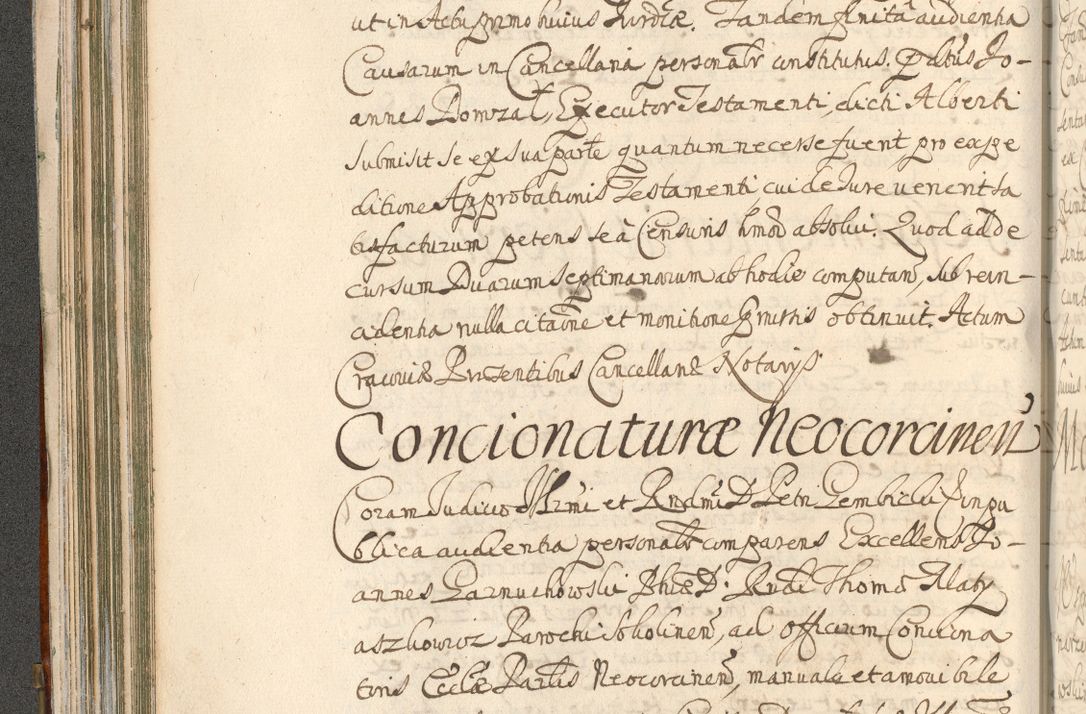 ut in Actu primo huius Iurdicæ. Tandem finitâ audientia
Causarum in Cancellaria personaltr constitutus. Pfatus Jo-
annes Domzał, Executor Testamenti, dicti Alberti
submisit se ex sua parte quantum necesse fuerit pro expe
ditione Approbationis Testamenti, cui de Iure venerit sa
tisfacturum petens se à Censuris hmõi absolui. Quod ad de
cursum Duarum septimanarum ab hodie computan, sub rein-
cidentia nulla citaõne et monitione pmissis obtinuit. Actum
Cracoviæ Præsentibus Cancellariæ Notarijs
Concionaturæ Neocorcinen̄
Coram Iudicio Illrmi et Rndmi D. Petri Gembicki in pu
blica audientia personaltr comparens Excellens Jo-
annes Garnuchowski Phiæ D. Rndi Thomæ Alaty
aszkowicz Parochi Sokolinen, ad officium Conciona
toris Ecclæ Partis Neocorcinen, manuale et amouibile